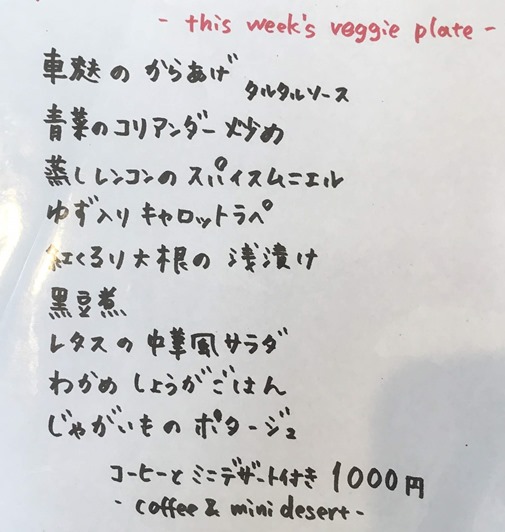 - this week's veggie plate -
車麩の からあげ
タルタルソース
青菜のコリアンダー炒め
蒸しレンコンの スパイスムニエル
ゆず入り キャロットラペ
紅くるり大根の 浅漬け
黒豆煮
レタスの 中華風サラダ
わかめ しょうがごはん
じゃがいもの ポタージュ
コーヒーと ミニデザート付き 1000円
- coffee & mini desert -